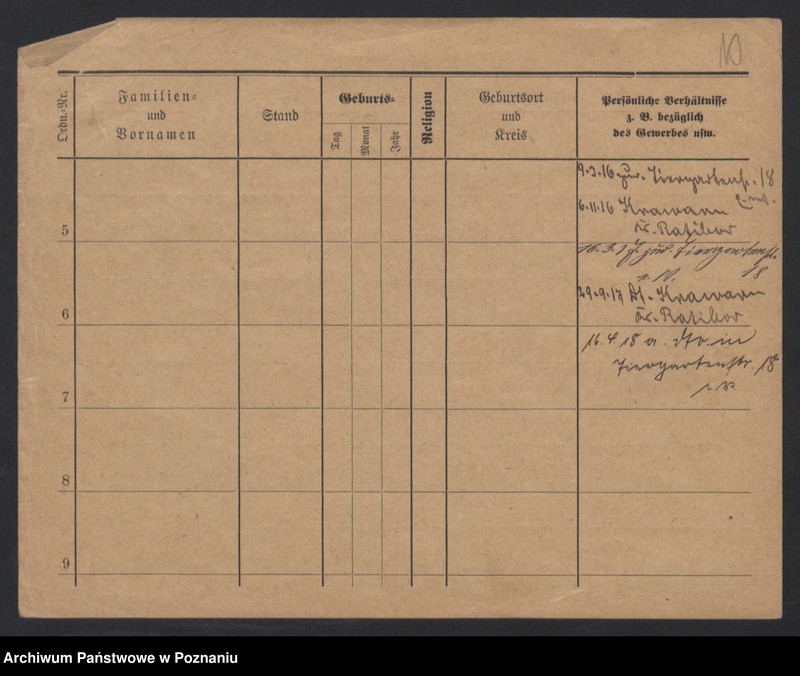 Ordn.=Nr.
Familien=
und
Vornamen
Stand
Geburts=
Tag
Monat
Jahr
Religion
Geburtsort
und
Kreis
Persönliche Verhältnisse
z. B. bezüglich
des Gewerbes usw.
9.3.16 zur. Tiergartenstr. 18
6.11.16 Krawarn
Kr. Ratibor
5
16.3.17 zur. Tiergartenstr.
18
29.9.17 Krawarn
Kr. Ratibor
6
16.4.18 a. dto. in
Tiergartenstr. 18
7
8
9
Archiwum Państwowe w Poznaniu